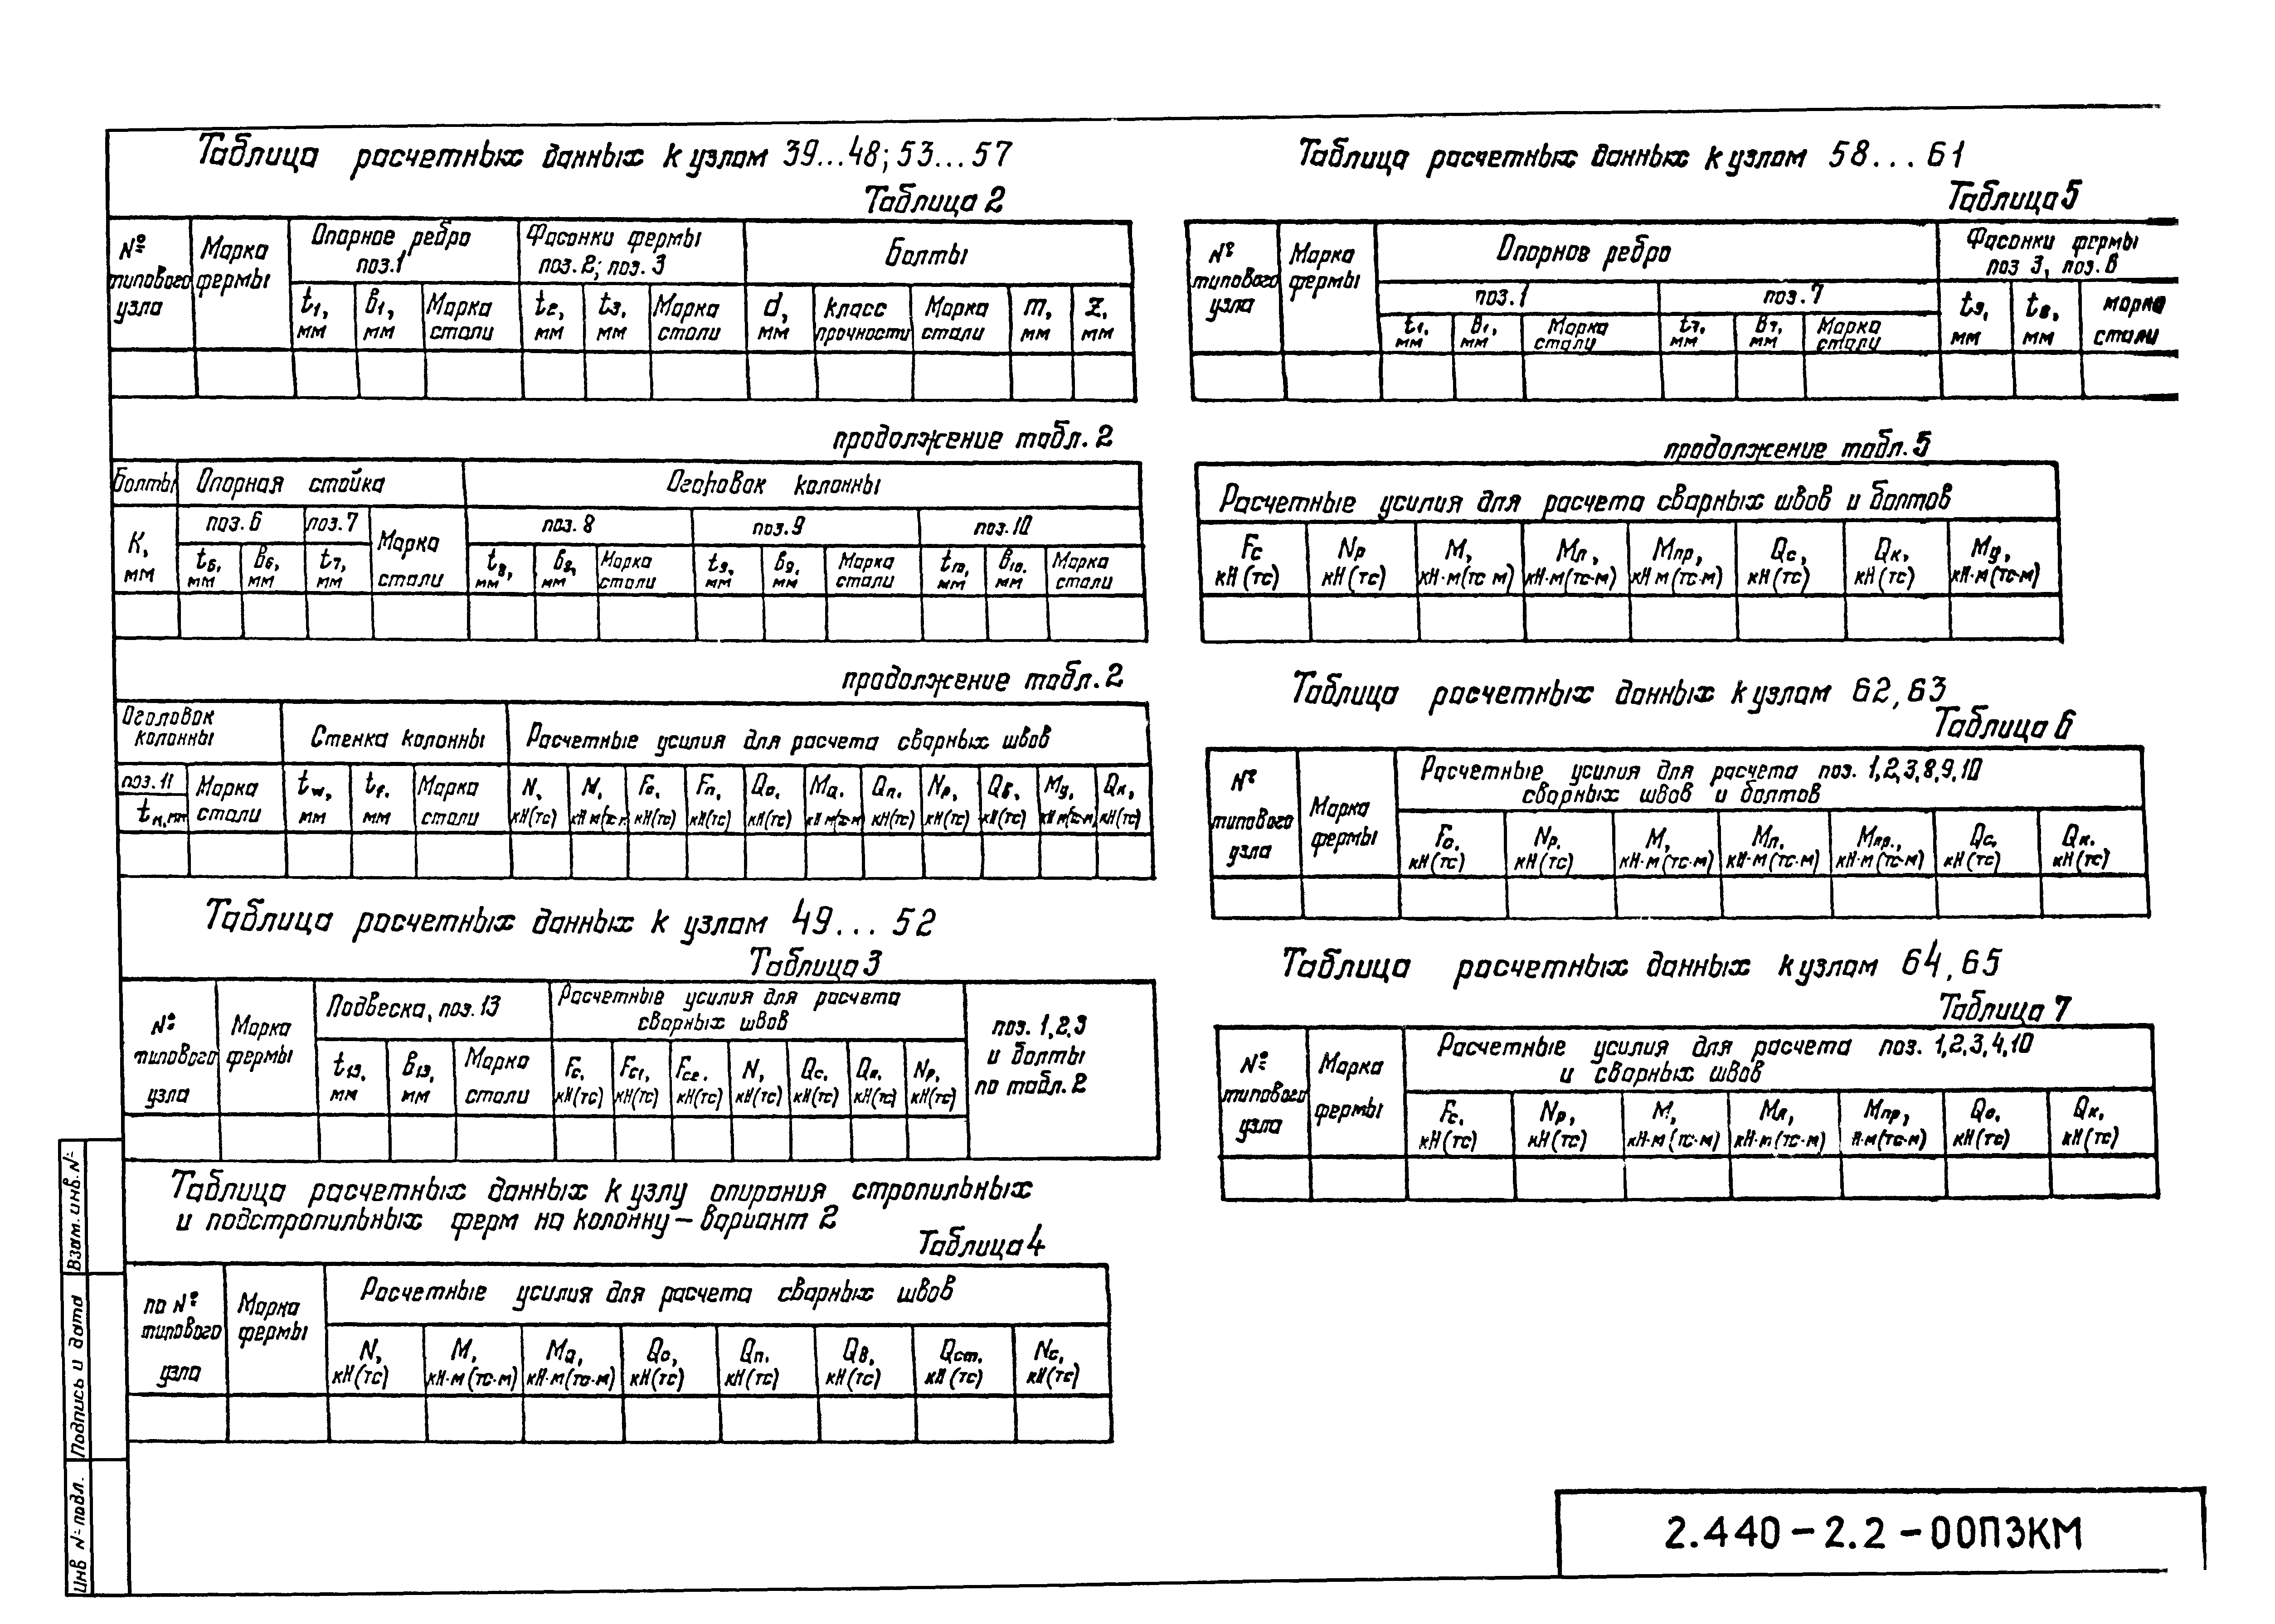 Таблица расчетных данных к узлам 39...48; 53...57
Таблица 2
№ типового узла
Марка фермы
Опорное ребро поз.1
Фасонки фермы поз. 2; поз. 3
Болты
t1, мм
в1, мм
Марка стали
t2, мм
t3, мм
Марка стали
d, мм
класс прочности
Марка стали
m, мм
z, мм
продолжение табл. 2
Болты
Опорная стойка
Оголовок колонны
К, мм
поз. 6
поз. 7
Марка стали
поз. 8
поз. 9
поз. 10
t6, мм
в6, мм
t7, мм
t8, мм
в8, мм
Марка стали
t9, мм
в9, мм
Марка стали
t10, мм
в10, мм
Марка стали
продолжение табл. 2
Оголовок колонны
Стенка колонны
Расчетные усилия для расчета сварных швов
поз. 11
Марка стали
tw, мм
tf, мм
Марка стали
N, кН(тс)
Fп, кН(тс)
Qо, кН(тс)
Qп, кН(тс)
Nр, кН(тс)
Qв, кН(тс)
Qк, кН(тс)
Таблица расчетных данных к узлам 49... 52
Таблица 3
№ типового узла
Марка фермы
Подвеска, поз. 13
Расчетные усилия для расчета сварных швов
поз. 1,2,3 и болты по табл. 2
t13, мм
в13, мм
Марка стали
Fс, кН(тс)
Fс1, кН(тс)
Fс2, кН(тс)
N, кН(тс)
Qс, кН(тс)
Qп, кН(тс)
Nр, кН(тс)
Таблица расчетных данных к узлу опирания стропильных
и подстропильных ферм на колонну – вариант 2
Таблица 4
по № типового узла
Марка фермы
Расчетные усилия для расчета сварных швов
N, кН(тс)
М, кН·м(тс·м)
Mq, кН·м(тс·м)
Qо, кН(тс)
Qп, кН(тс)
Qв, кН(тс)
Qст, кН(тс)
Nс, кН(тс)
Таблица расчетных данных к узлам 58... 61
Таблица 5
№ типового узла
Марка фермы
Опорное ребро
Фасонки фермы поз 3, поз. 8
поз. 1
поз. 7
t1, мм
в1, мм
Марка стали
t7, мм
в7, мм
Марка стали
t3, мм
t8, мм
марка стали
продолжение табл. 5
Расчетные усилия для расчета сварных швов и болтов
Fс кН(тс)
Nр кН(тс)
М, кН·м(тс м)
Мп, кН·м(тс·м)
Мпр, кН м(тс·м)
Qс, кН(тс)
Qк, кН(тс)
Мд, кН·м(тс·м)
Таблица расчетных данных к узлам 62, 63
Таблица 6
№ типового узла
Марка фермы
Расчетные усилия для расчета поз. 1,2,3,8,9,10
сварных швов и болтов
Fс, кН(тс)
Nр, кН(тс)
М, кН·м(тс·м)
Мп, кН·м(тс·м)
Мпр., кН·м(тс·м)
Qс, кН(тс)
Qк, кН(тс)
Таблица расчетных данных к узлам 64, 65
Таблица 7
№ типового узла
Марка фермы
Расчетные усилия для расчета поз. 1,2,3,4,10
и сварных швов
Fс, кН(тс)
Nр, кН(тс)
М, кН·м(тс·м)
Мп, кН·м(тс·м)
Мпр, Н·м(тс·м)
Qо, кН(тс)
Qк, кН(тс)
Взам. инв. №
Подпись и дата
Инв № подл.
2.440-2.2-00ПЗКМ